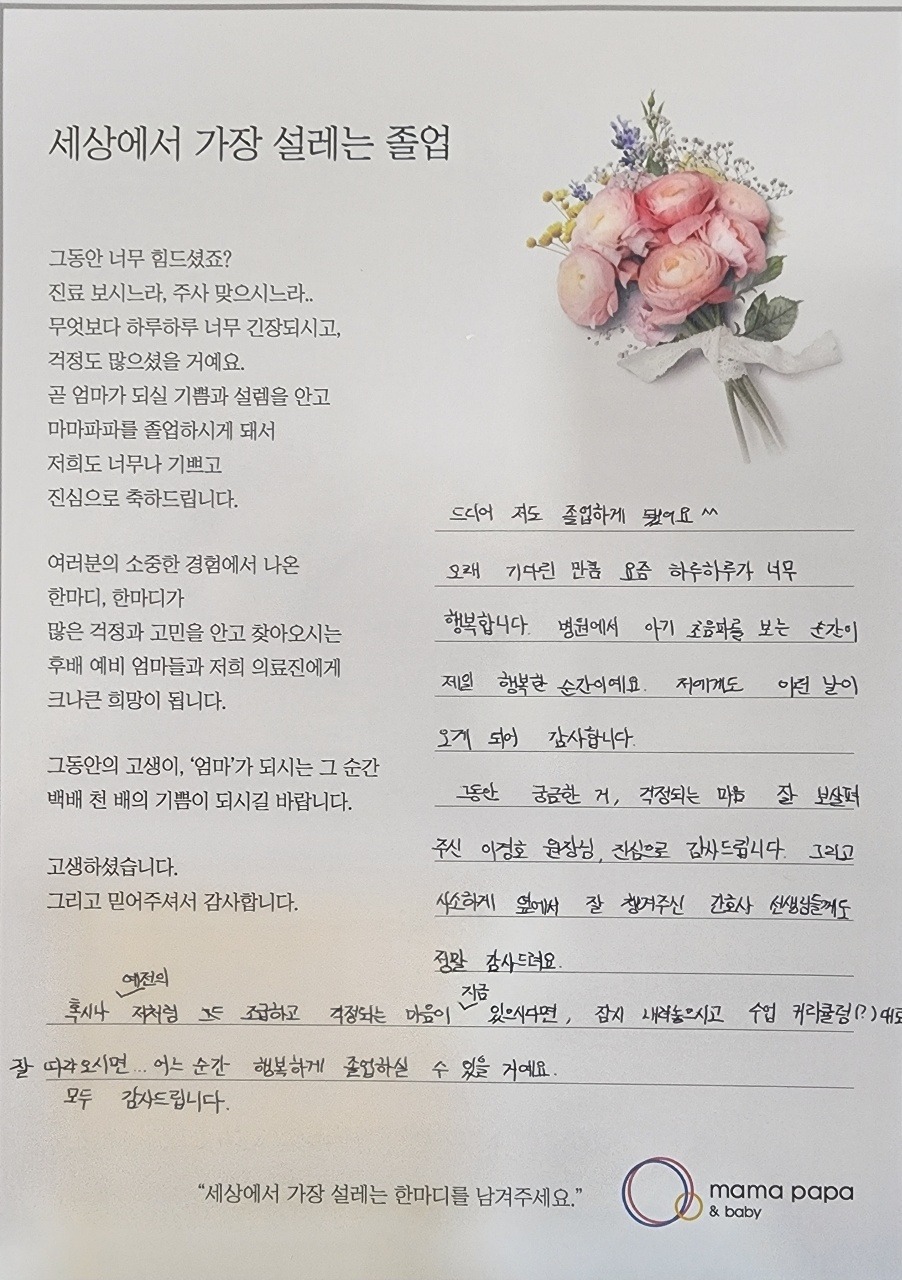 세상에서 가장 설레는 졸업
그동안 너무 힘드셨죠?
진료 보시느라, 주사 맞으시느라..
무엇보다 하루하루 너무 긴장되시고,
걱정도 많으셨을 거예요.
곧 엄마가 되실 기쁨과 설렘을 안고
마마파파를 졸업하시게 돼서
저희도 너무나 기쁘고
진심으로 축하드립니다.
여러분의 소중한 경험에서 나온
한마디, 한마디가
많은 걱정과 고민을 안고 찾아오시는
후배 예비 엄마들과 저희 의료진에게
크나큰 희망이 됩니다.
그동안의 고생이, ‘엄마’가 되시는 그 순간
백배 천 배의 기쁨이 되시길 바랍니다.
고생하셨습니다.
그리고 믿어주셔서 감사합니다.
드디어 저도 졸업하게 됐어요 ^^
오래 기다린 만큼 요즘 하루하루가 너무
행복합니다. 병원에서 아기 초음파를 보는 순간이
제일 행복한 순간이예요. 저에게도 이런 날이
오게 되어 감사합니다.
그동안 궁금한 거, 걱정되는 마음 잘 보살펴
주신 이경호 원장님, 진심으로 감사드립니다. 그리고
사소하게 옆에서 잘 챙겨주신 간호사 선생님들께도
정말 감사드려요.
예전의 지금
혹시나 저처럼 조급하고 걱정되는 마음이 있으시다면, 잠시 내려놓으시고 수업 커리큘럼(?)대로
잘 따라오시면... 어느 순간 행복하게 졸업하실 수 있을 거예요.
모두 감사드립니다.
“세상에서 가장 설레는 한마디를 남겨주세요.”
mama papa
& baby